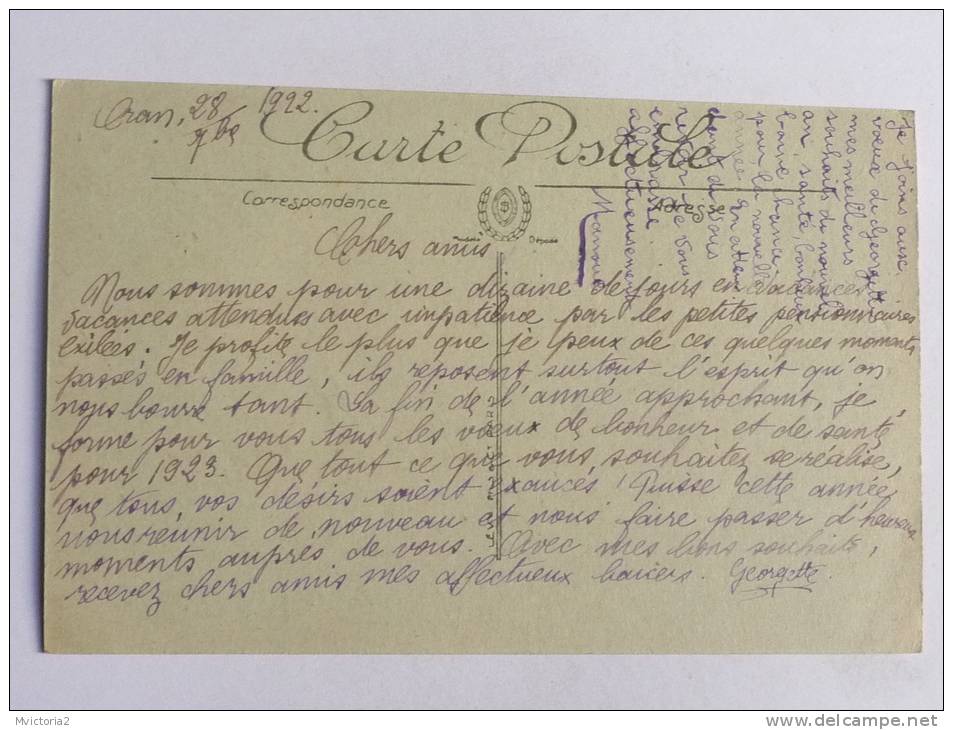 Oran, 28 Xbe 1922.
Carte Postale
Correspondance
Adresse
Modèle Déposé
Chers amis
Nous sommes pour une dizaine de jours en vacances,
vacances attendues avec impatience par les petites pensionnaires
exilées. Je profite le plus que je peux de ces quelques moments
passés en famille, ils reposent surtout l'esprit qu'on
nous bourre tant. La fin de l'année approchant, je
forme pour vous tous les vœux de bonheur et de santé
pour 1923. Que tout ce que vous souhaitez se réalise,
que tous vos désirs soient exaucés! Puisse cette année
nous réunir de nouveau et nous faire passer d'heureux
moments auprès de vous. Avec mes bons souhaits,
recevez chers amis mes affectueux baisers. Georgette.
Je joins aux
vœux de Georgette
mes meilleurs
souhaits de nouvel
an, santé, bonheur
bonne chance
pour la nouvelle
année. En atten
dant de vous
revoir je vous
embrasse
affectueusement
Manou
Mvictoria2
http://www.delcampe.net